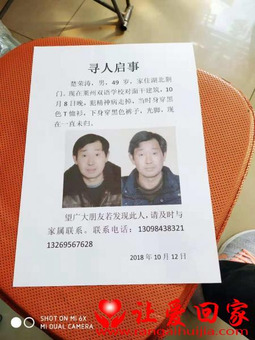 寻人启事
楚荣涛，男，49岁，家住湖北荆
门，现在莱州双语学校对面干建筑，10
月8日晚，犯精神病走掉，当时身穿黑
色T恤衫，下身穿黑色裤子，光脚，现
在一直未归。
望广大朋友若发现此人，请及时与
家属联系。联系电话：13098438321
13269567628
2018年10月12日
SHOT ON MI 6X
MI DUAL CAMERA
让爱回家